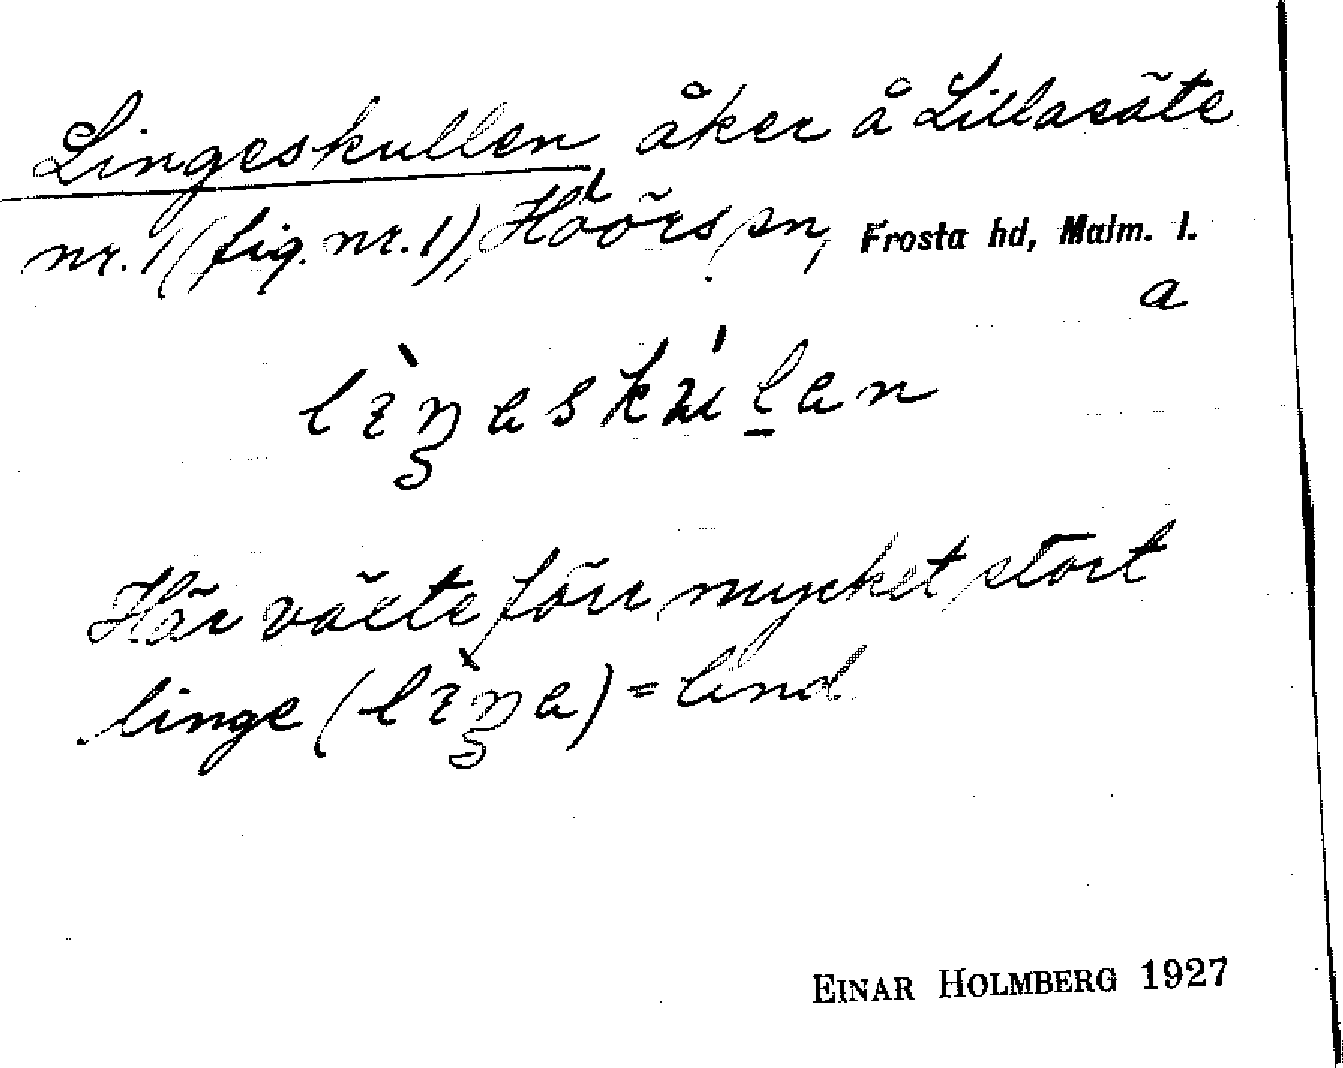 Lingeskullen åker å Lillasäte
nr. 1 (fig. nr. 1), Höörs sn, Frosta hd, Malm. l.
a
Här växte förr mycket stort
linge = lind
EINAR HOLMBERG 1927